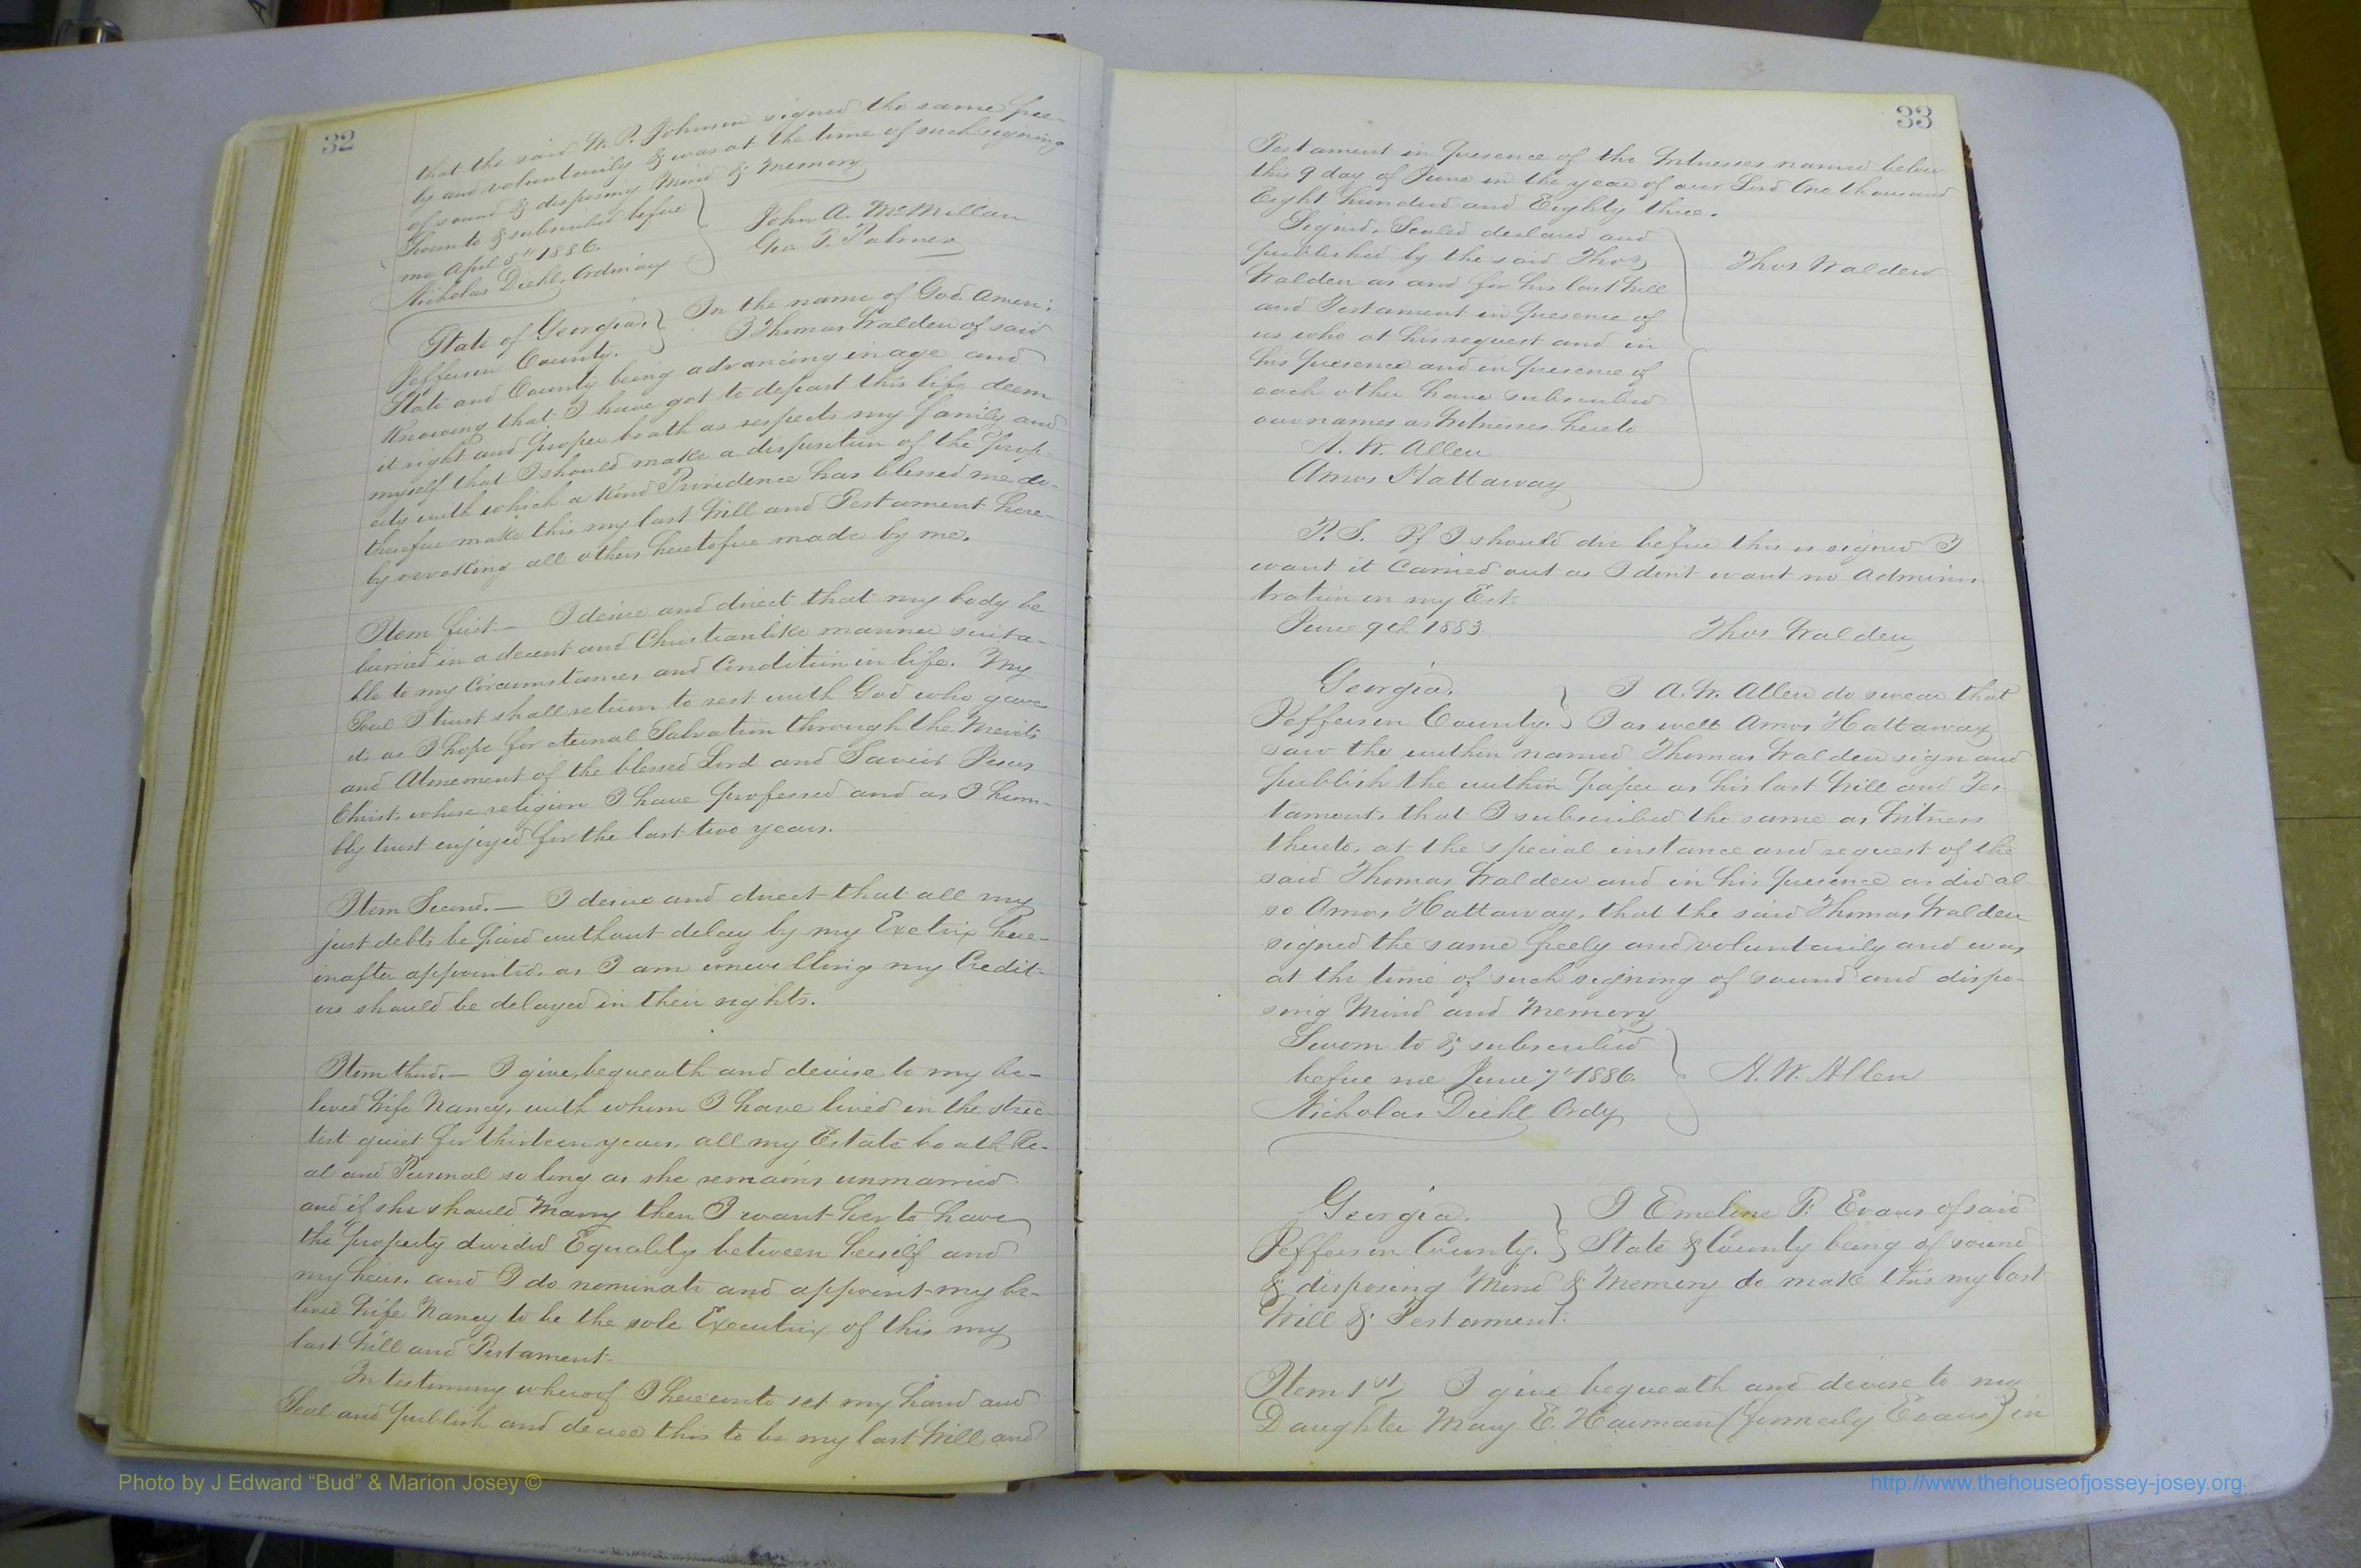 32
that the said W. P. Johnson signed the same free-
ly and voluntarily & was at the time of such signing
of sound & disposing Mind & Memory
Sworn to & subscribed before
me April 5th 1886.
Nicholas Diehl. Ordinary
John A. McMillan
Geo. P. Palmer
State of Georgia,
Jefferson County.
In the name of God. Amen;
I Thomas Walden of said
State and County being advancing in age and
Knowing that I have got to depart this life deem
it right and proper boath as respects my family and
myself that I should make a disposition of the prop-
erty with which a Kind Providence has blessed me do-
therefore make this my last Will and Testament here-
by revoking all others heretofore made by me.
Item first — I desire and direct that my body be
burried in a decent and Christianlike manner suita-
ble to my Circumstances and Condition in life. My
Soul I trust shall return to rest with God who gave
it, as I hope for eternal Salvation through the Merits
and Atonement of the blessed Lord and Savior Jesus
Christ, whose religion I have professed and as I hum-
bly trust enjoyed for the last two years.
Item Second. — I desire and direct that all my
just debts be paid without delay by my Exetrix here-
inafter appointed, as I am unwilling my Credit-
ors should be delayed in their rights.
Item third. — I give, bequeath and devise to my be-
loved Wife Nancy, with whom I have lived in the stric-
test quiet for thirteen years, all my Estate boath Re-
al and Personal so long as she remains unmarried
and if she should Marry then I want her to have
the property divided Equally between herself and
my heirs. and I do nominate and appoint my be-
loved Wife Nancy to be the sole Executrix of this my
last Will and Testament.
In testimony whereof I hereunto set my hand and
Seal and publish and decree this to be my last Will and
33
Testament in presence of the Witnesses named below
this 9 day of June in the year of our Lord One thousand
Eight hundred and Eighty three.
Signed, Sealed declared and
published by the said Thos
Walden as and for his last Will
and Testament in presence of
us who at his request and in
his presence and in presence of
each other have subscribed
our names as Witnesses hereto
A. W. Allen
Amos Hattaway
Thos Walden
P. S. If I should die before this is signed I
want it Carried out as I don't want no Adminis-
tration on my Est.
June 9th 1883.
Thos Walden
Georgia.
Jefferson County.
I A. W. Allen do swear that
I as well Amos Hattaway
saw the within named Thomas Walden sign and
publish the within paper as his last Will and Tes
tament, that I subscribed the same as Witness
thereto, at the special instance and request of the
said Thomas Walden and in his presence as did al
so Amos Hattaway, that the said Thomas Walden
signed the same freely and voluntarily and was
at the time of such signing of sound and dispo-
sing Mind and Memory
Sworn to & subscribed
before me June 7th 1886.
Nicholas Diehl Ordy
A. W. Allen
Georgia.
Jefferson County.
I Emeline P. Evans of said
State & County being of sound
& disposing Mind & Memory do make this my last
Will & Testament.
Item 1st I give bequeath and devise to my
Daughter Mary E. Harman (formerly Evans) in
Photo by J Edward “Bud” & Marion Josey ©
http://www.thehouseofjossey-josey.org